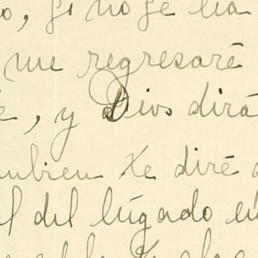 o, si no se lea
me regresaré
é, y Dios dirá
ambien te diré
l del lugado en